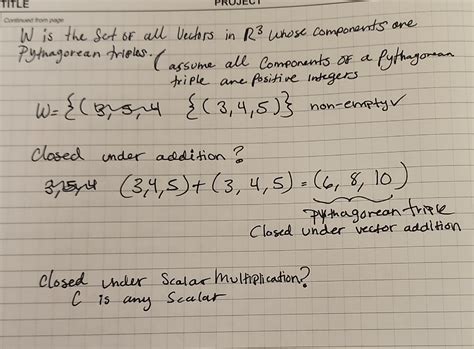 TITLE PROJECT
Continued from page
W is the Set of all Vectors in R³ whose components are
Pythagorean triples. (assume all Components of a Pythagorean
triple are Positive Integers
W = {(3,4,5)} non-empty ✓
Closed under addition?
(3,4,5) + (3, 4, 5) = (6, 8, 10)
Pythagorean triple
Closed under vector addition
Closed under Scalar Multiplication?
C is any Scalar